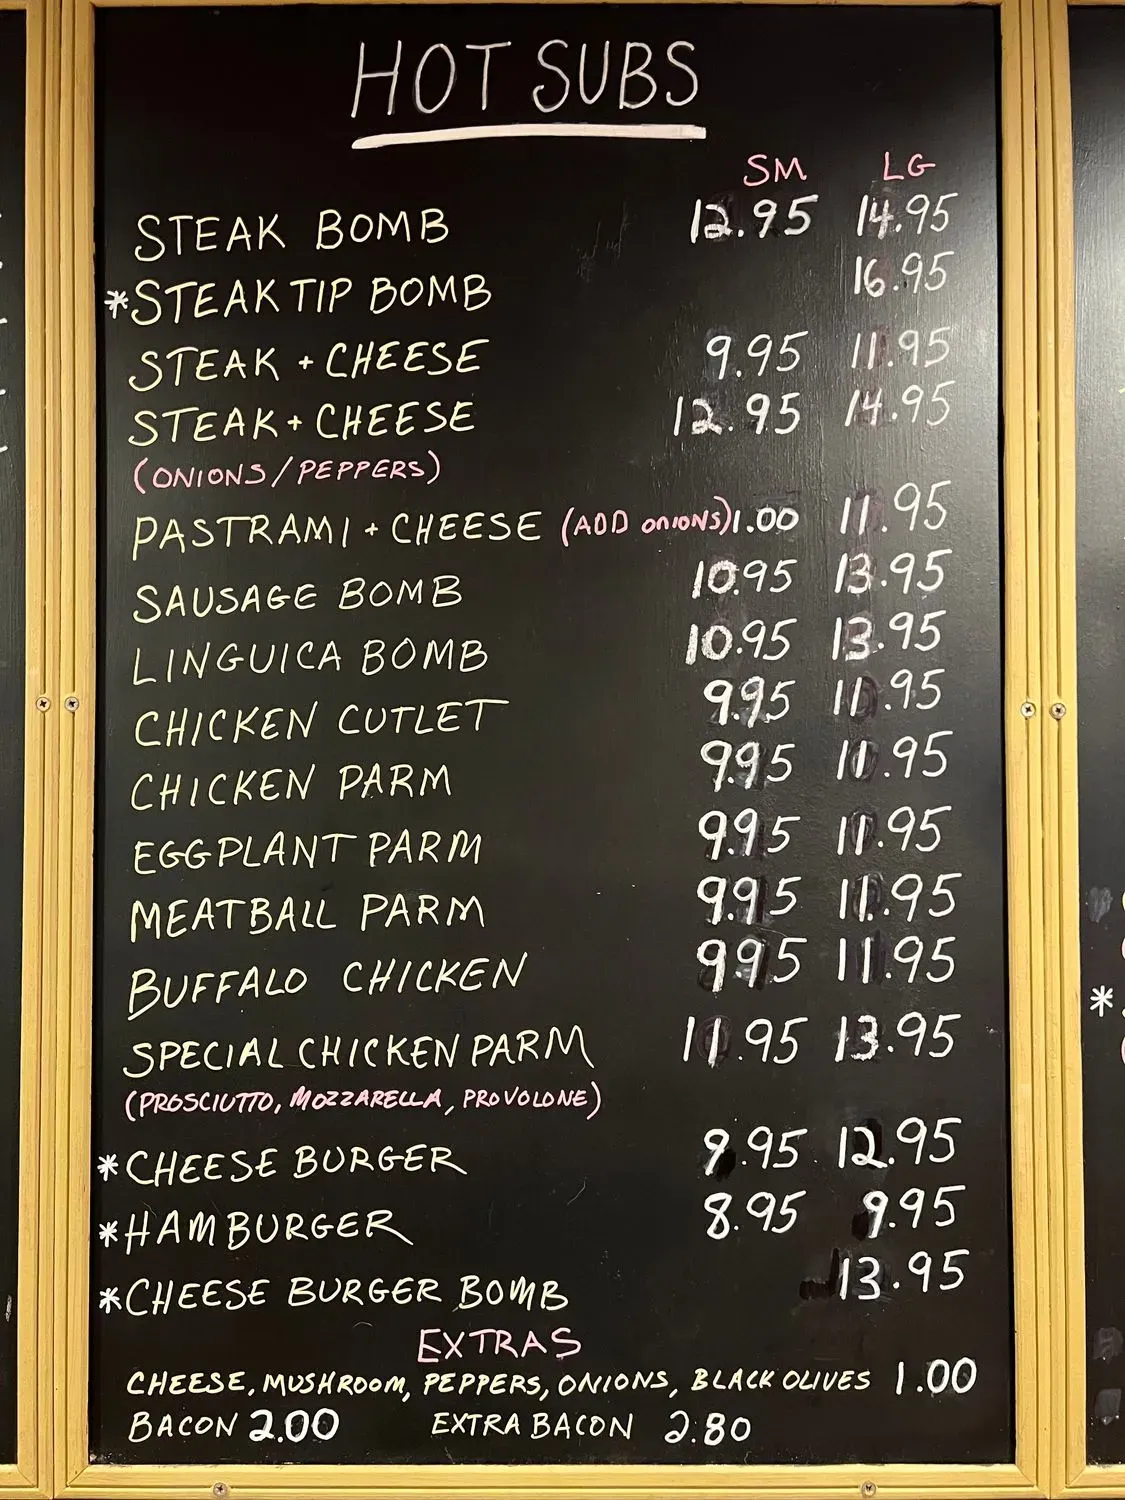 HOT SUBS
SM LG
STEAK BOMB 12.95 14.95
*STEAK TIP BOMB 16.95
STEAK + CHEESE 9.95 11.95
STEAK + CHEESE 12.95 14.95
(ONIONS/PEPPERS)
PASTRAMI + CHEESE (ADD ONIONS) 1.00 11.95
SAUSAGE BOMB 10.95 13.95
LINGUICA BOMB 10.95 13.95
CHICKEN CUTLET 9.95 11.95
CHICKEN PARM 9.95 11.95
EGGPLANT PARM 9.95 11.95
MEATBALL PARM 9.95 11.95
BUFFALO CHICKEN 9.95 11.95
SPECIAL CHICKEN PARM 11.95 13.95
(PROSCIUTTO, MOZZARELLA, PROVOLONE)
*CHEESE BURGER 9.95 12.95
*HAMBURGER 8.95 9.95
*CHEESE BURGER BOMB 13.95
EXTRAS
CHEESE, MUSHROOM, PEPPERS, ONIONS, BLACK OLIVES 1.00
BACON 2.00 EXTRA BACON 2.80